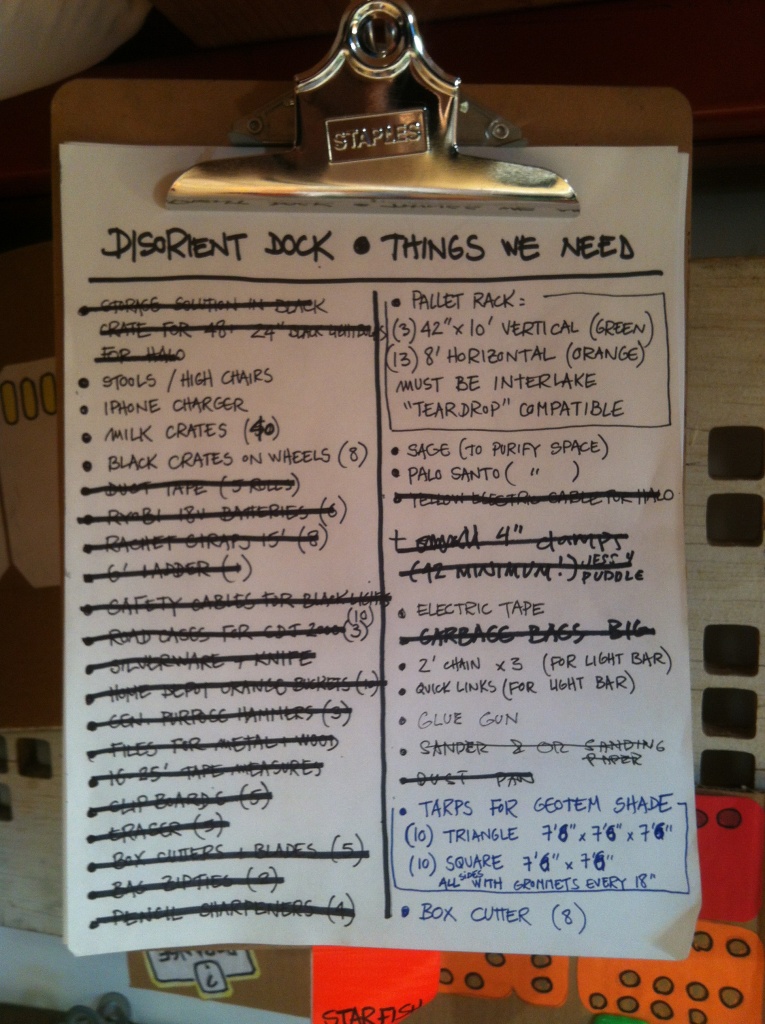 STAPLES
DISORIENT DOCK • THINGS WE NEED
STORAGE SOLUTION IN BLACK
CRATE FOR 48" 24" BLACK LIGHT BULBS
FOR HALO
• STOOLS / HIGH CHAIRS
• IPHONE CHARGER
• MILK CRATES (40)
• BLACK CRATES ON WHEELS (8)
• DUCT TAPE (5 ROLLS)
• RYOBI 18V BATTERIES (6)
• RACHET STRAPS 15' (8)
• 6' LADDER (1)
• SAFETY CABLES FOR BLACK LIGHTS (10)
• ROAD CASES FOR CDJ 2000 (3)
• SILVERWARE + KNIFE
• HOME DEPOT ORANGE BUCKETS
• GEN. PURPOSE HAMMERS (3)
• FILES FOR METAL + WOOD
• 16-25' TAPE MEASURES
• CLIP BOARDS (5)
• ERASER (3)
• BOX CUTTERS + BLADES (5)
• BAG ZIPTIES (2)
• PENCIL SHARPENERS (4)
• PALLET RACK:
(3) 42" x 10' VERTICAL (GREEN)
(13) 8' HORIZONTAL (ORANGE)
MUST BE INTERLAKE
"TEARDROP" COMPATIBLE
• SAGE (TO PURIFY SPACE)
• PALO SANTO ( " )
• YELLOW ELECTRIC CABLE FOR HALO
small 4" clamps
(12 MINIMUM!) JESS Y
PUDDLE
• ELECTRIC TAPE
• GARBAGE BAGS BIG
• 2' CHAIN x 3 (FOR LIGHT BAR)
• QUICK LINKS (FOR LIGHT BAR)
• GLUE GUN
• SANDER & OR SANDING
PAPER
• DUST PAN
• TARPS FOR GEOTEM SHADE
(10) TRIANGLE 7'6" x 7'6" x 7'6"
(10) SQUARE 7'6" x 7'6"
ALL SIDES WITH GROMMETS EVERY 18"
• BOX CUTTER (8)
STARFISH